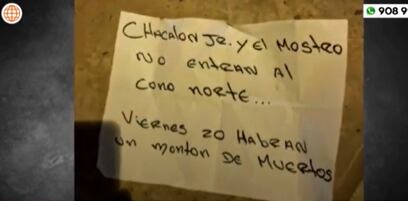 908 9
CHACALON JR. Y EL MOSTRO
NO ENTRAN AL
CONO NORTE...
VIERNES 20 HABRAN
UN MONTON DE MUERTOS